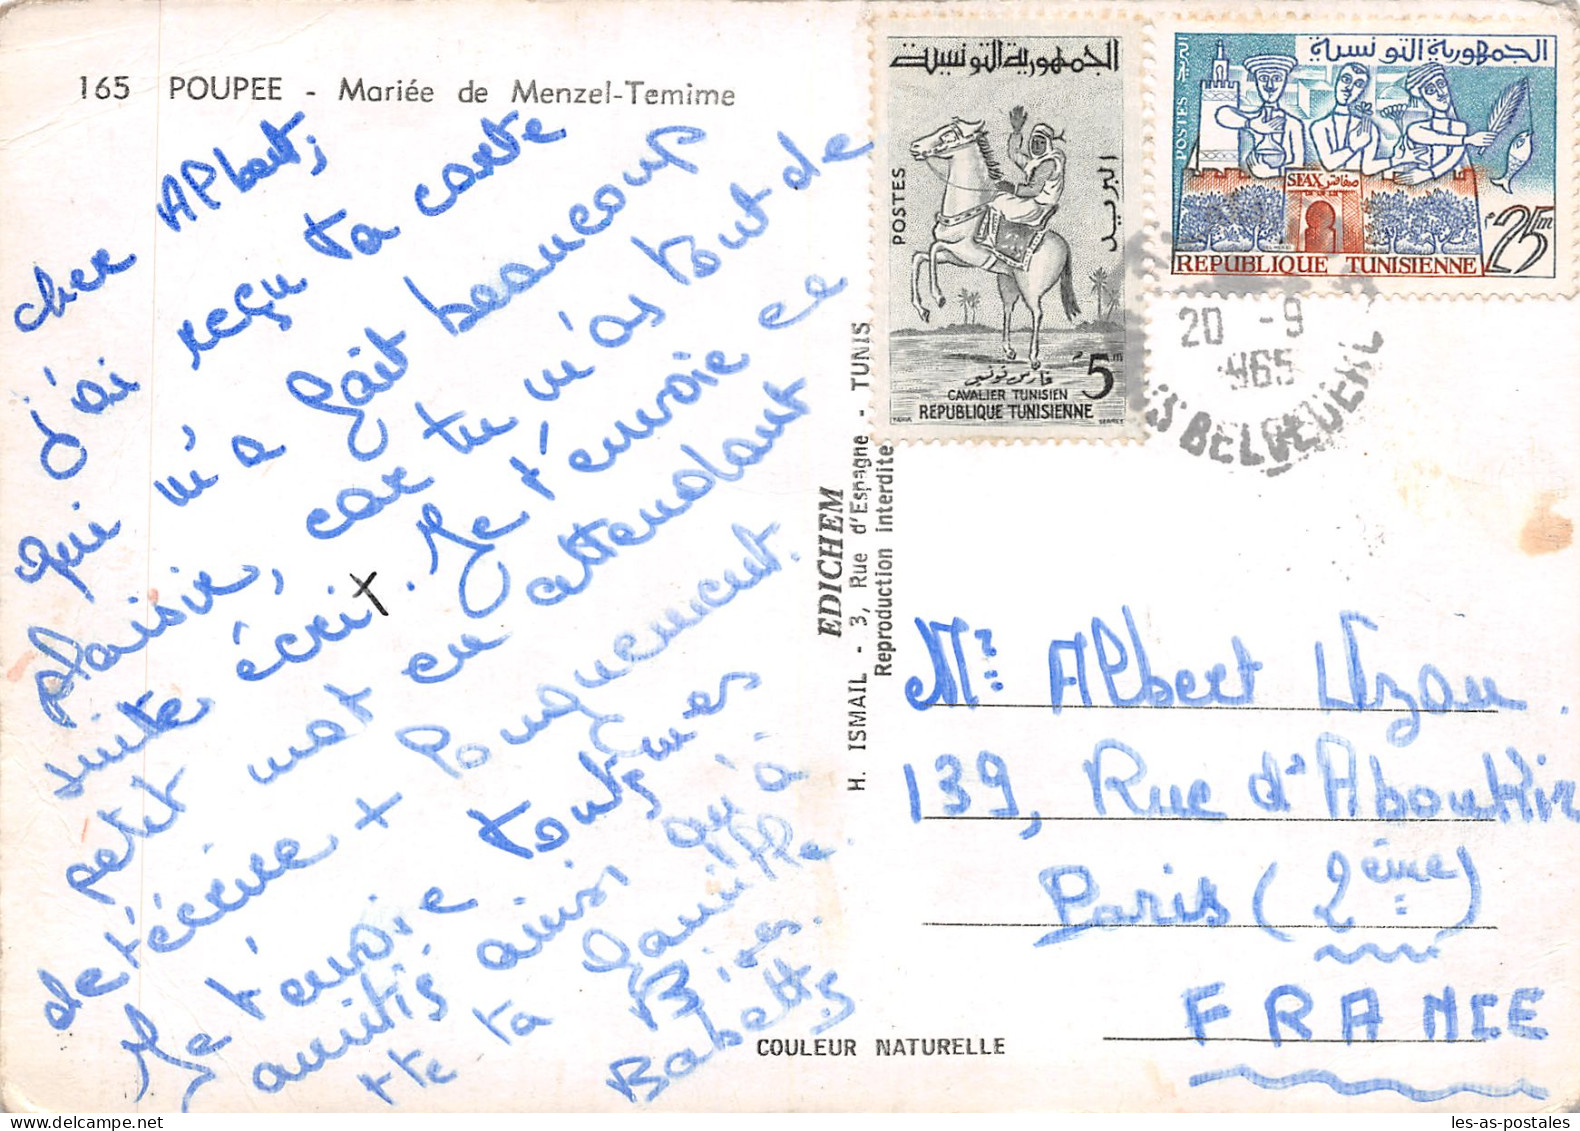 165 POUPEE - Mariée de Menzel-Temime
cher Albert,
J'ai reçu ta carte
qui m'a fait beaucoup
plaisir, car tu m'as tout de
suite écrit. Je t'envoie ce
petit mot en attendant
de t'écrire + longuement.
Je t'envoie toutes mes
amitiés ainsi qu'à
tte ta famille.
Bises.
Babette
COULEUR NATURELLE
EDICHEM
H. ISMAIL - 3, Rue d'Espagne - TUNIS
Reproduction interdite
الجمهورية التونسية
POSTES
البريد
5m
فارس تونسي
CAVALIER TUNISIEN
REPUBLIQUE TUNISIENNE
الجمهورية التونسية
البريد
POSTES
SFAX صفاقس
25m
REPUBLIQUE TUNISIENNE
20 -9
1965
TUNIS BELVEDERE
Mr. Albert Uzan.
139, Rue d'Aboukir
Paris (2ème)
FRANCE
les-as-postales